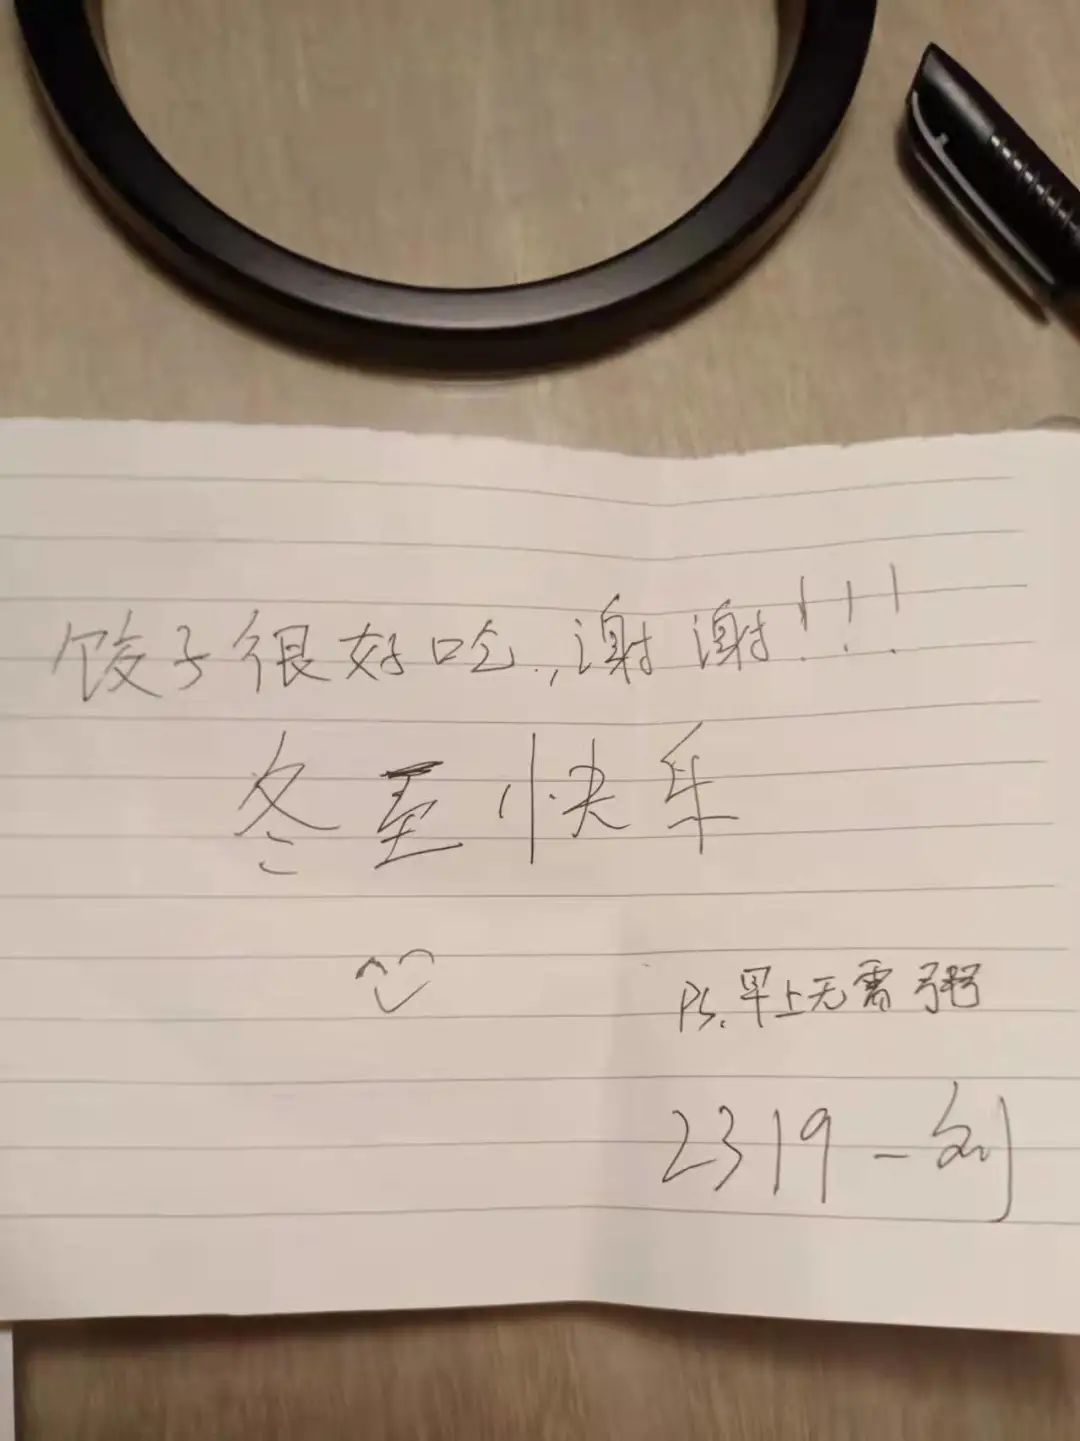 饺子很好吃,谢谢!!!
冬至快乐
PS.早上无需粥
2319-刘